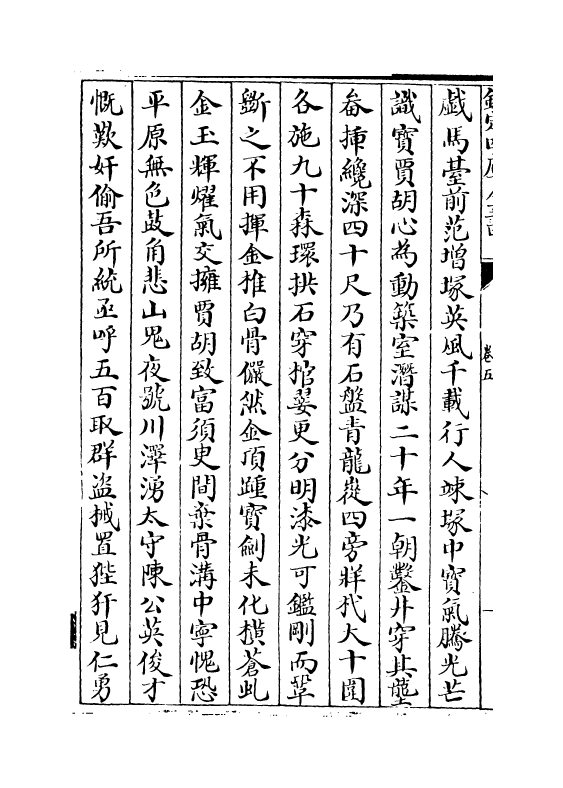 卷五
戱馬臺前范增塚英風千載行人竦塚中寳氣騰光芒
識寳賈胡心為動築室潛謀二十年一朝鑿井穿其壟
畚挿纔深四十尺乃有石盤青龍從四旁牂杙大十圍
各施九十森環拱石穿棺翣更分明漆光可鑑剛而鞏
斵之不用揮金椎白骨儼然金頂踵寳劍未化橫蒼虬
金玉輝耀氣交擁賈胡致富須臾間棄骨溝中寧愧恐
平原無色鼓角悲山鬼夜號川澤湧太守陳公英俊才
慨歎奸偷吾所統亟呼五百取群盜械置狴犴見仁勇